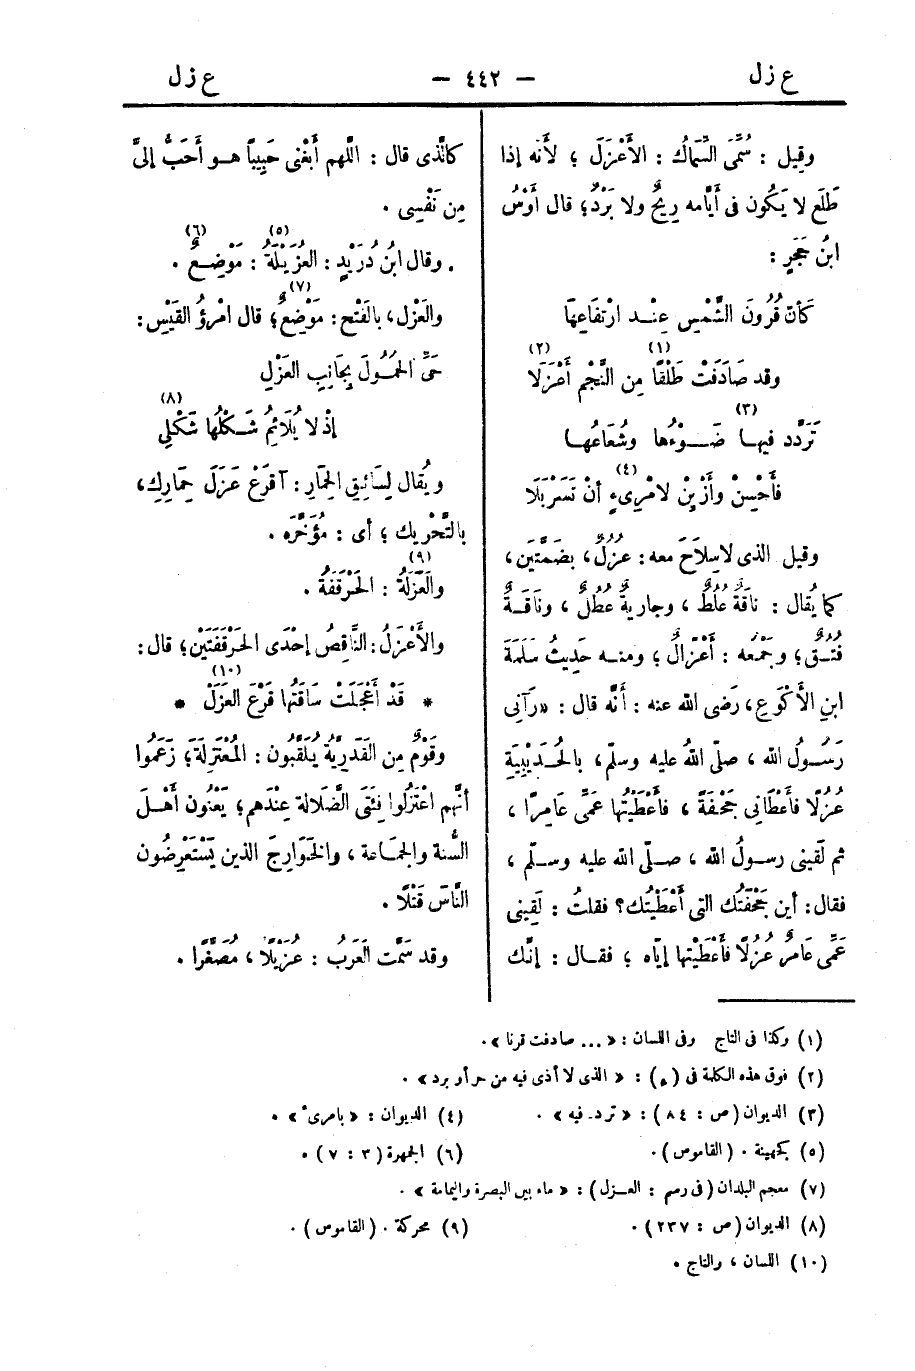 ع زل
— ٤٤٢ —
ع زل
وقيل : سُمِّىَ السِّماكُ : الأَعْزَلَ ؛ لأَنه إذا
طَلَع لا يَكُون فى أَيّامه رِيحٌ ولا بَرْدٌ؛ قال أَوْسُ
ابنُ حَجَرٍ :
كَأَن قُرُونَ الشَّمْسِ عِنْــد ارْتفَاعِهَا
وقد صَادَفَتْ طَلْقًا (١) من النَّجْم أَعْزَلَا (٢)
تَرَدَّد فيهـا (٣) ضَــوْءُها وشُعَاعُهـا
فَأَحْسِنْ وأَزْيِنْ لامْرِىءٍ (٤) أَنْ تَسَرْبَلَا
وقيل الذى لاسِلاَحَ معه : عُزُلٌ ، بضَمَّتَين ،
كما يُقال : ناقَةٌ عُلُطٌ ، وجاريةٌ عُطُلٌ ، وناقَـةٌ
فُتُـقٌ ؛ وجَمْعُه : أَعْزالٌ ؛ ومنـه حَدِيثُ سَلَمَةَ
ابنِ الأَكْوَعِ ، رَضى الله عنه : أَنَّه قال : «رَآنِى
رَسُـولُ الله ، صلّى اللهُ عليه وسلّم ، بالحُـدَيْبِيَةِ
عُزُلًا فأَعْطانِى جَحْفَةً ، فأَعْطَيْتُها عَمِّى عَامِرًا ،
ثم لَقِينى رسولُ الله ، صلّى الله عليه وسـلّم ،
فقال : أين جَحْفَتُك التى أَعْطَيْتُك؟ فقلتُ : لَقِينى
عَمِّى عَامرٌ عُزُلًا فأَعْطَيْتها إيّاه ؛ فقـال : إنَّك
كالَّذى قال : اللّهم أَبْغِنى حَبِيبًا هـو أَحَبُّ إلىَّ
مِن نَفْسِى .
وقال ابنُ دُرَيْدٍ : العُزَيْلَةُ (٥) : مَوْضِـعٌ (٦) .
والعَزْل ، بالفَتْح : مَوْضِعٌ (٧) ؛ قال امْرؤُ القَيْس :
حَىِّ الحُمُـولَ بِجَانِبِ العَزْلِ
إذْ لا يُلَائِمُ شَـكْلُها شَكْلِى (٨)
ويُقال لِسَائِقِ الحِمَارِ : آقرَعْ عَزَلَ حِمارِك ،
بالتَّحْرِيك ؛ أى : مُؤَخَّرَه .
والعَزَلَةُ (٩) : الحَرْقَفَةُ .
والأَعْزَلُ : النَّاقِصُ إحْدَى الحَرْقَفَتَيْن ؛ قال :
* قَدْ أَعْجَلَتْ سَاقَتُها قَرْعَ العَزَلْ (١٠) *
وقَوْمٌ مِن القَدَرِيَّة يُلَقَّبُون : المُعْتَزِلَةَ ؛ زَعَموا
أَنَّهم اعْتَزَلُوا فِئَتَىِ الضَّلالة عِنْدَهم ؛ يَعْنُون أَهْـلَ
السُّنة والجَمَاعة ، والخَوَارِجَ الذين يَسْتَعْرِضُون
النَّاسَ قَتْلًا .
وقد سَمَّت العَرَبُ : عُزَيْلًا ، مُصَغَّرًا .
(١) وكذا فى التاج وفى اللسان : « ... صادفت قرنا » .
(٢) فوق هذه الكلمة فى (م) : « الذى لا أذى فيه من حر أو برد » .
(٣) الديوان (ص : ٨٤) : « تردد فيه » .
(٤) الديوان : « بامرئ » .
(٥) كجهينة . (القاموس) .
(٦) الجمهرة (٣ : ٧) .
(٧) معجم البلدان (فى رسم : العـزل) : « ماء بين البصرة واليمامة » .
(٨) الديوان (ص : ٢٣٧) .
(٩) محركة . (القاموس) .
(١٠) اللسان ، والتاج .